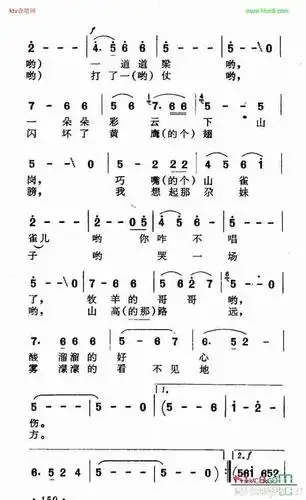 ktv合吧网 www.ktvc8.com
f
2 - - - | 4· 5 6 6 | 5 - - - | 5 - \0 |
哟) 一道道梁 哟,
哟) 打了一(哟)仗 哟,
7 - 6 6 | 5 - 6 6 | 7· 6 6 | 5 - - - |
一朵朵彩云下山
闪坏了黄鹰(的个)翅
5 - \0 | 5 - 5 5 | 5 - 2 2 2 | 4 5 6 1 |
岗, 巧嘴(的个)山雀
膀, 我想起那尕妹
2 - - - | 2 - 2 0 5 | 5 - 5 2 | 4 - 5 6 |
雀儿哟你咋不唱
子哟哭一场
5 - \0 | 7 - 6 6 | 5 - 6 6 | 2 - 7 - |
了, 牧羊的哥哥哟,
哟, 山高(的那)路远,
7· 6 6 6 | 5 - 2 - | 2 - - - | 5 - 2 - |
酸溜溜的好心
雾濛濛的看不见地
1.
5 - - - | 5 - 0 | 5 - - - | 5 - - - |
伤。
方。
2.
6· 5 2 4 | 5 - - - | 5 - 0 :‖ (561 652?
150